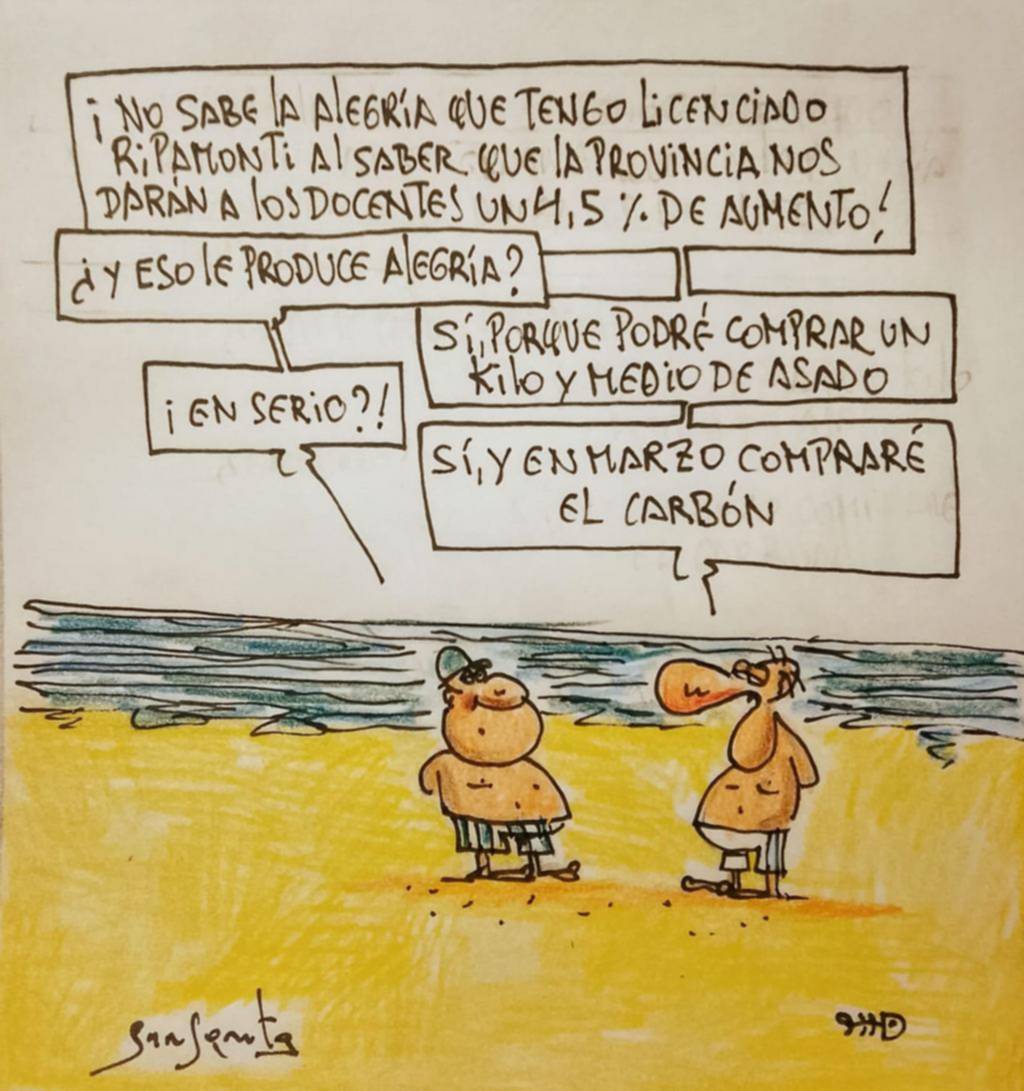 ¡NO SABE LA ALEGRÍA QUE TENGO LICENCIADO
RIPAMONTI AL SABER QUE LA PROVINCIA NOS
DARÁN A LOS DOCENTES UN 4,5 % DE AUMENTO!
¿Y ESO LE PRODUCE ALEGRÍA?
SÍ, PORQUE PODRÉ COMPRAR UN
KILO Y MEDIO DE ASADO
¡EN SERIO?!
SÍ, Y EN MARZO COMPRARÉ
EL CARBÓN